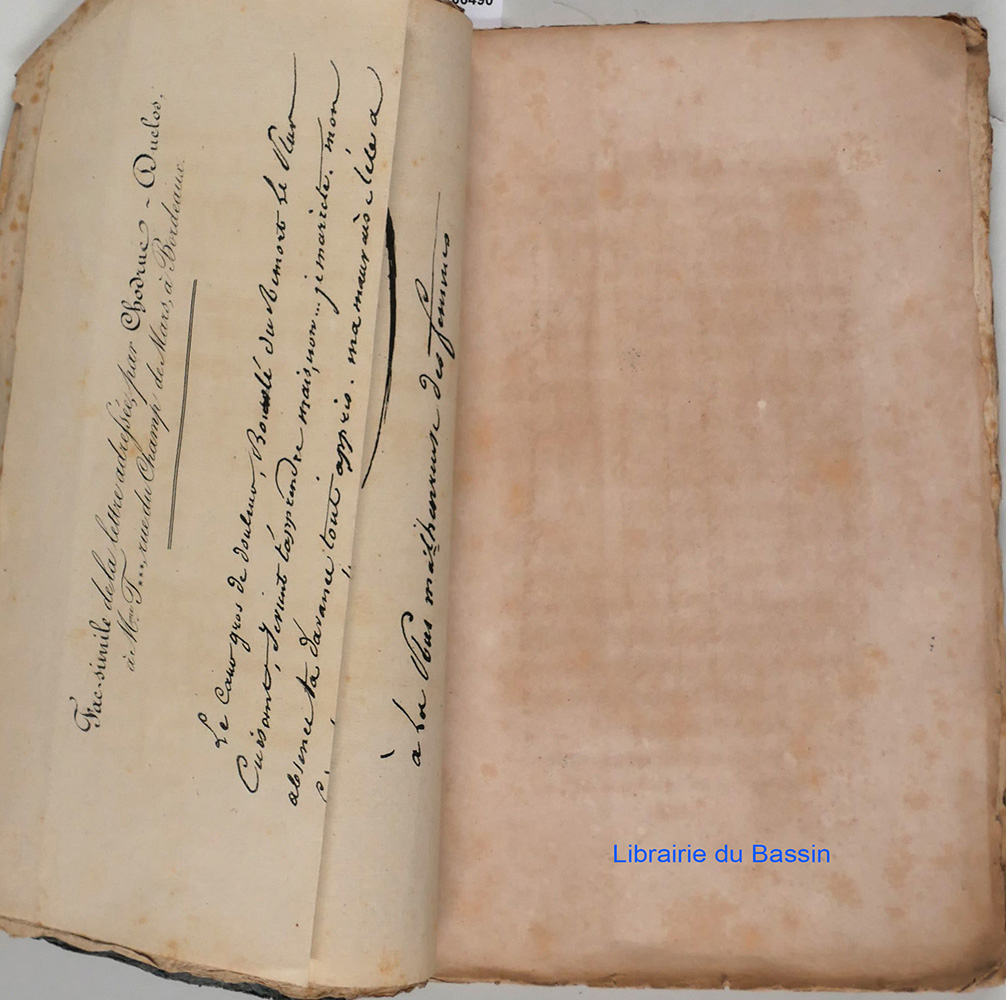 Fac-simile de la lettre adressée, par Chodruc-Duclos,
à Mme T..., rue du Champ de Mars, à Bordeaux.
Le Coeur gros de douleur, Bourelé du Remort le Plus
Cuisant, Jevient t'apprendre mais, non... je marrete. mon
absence ta davance tout appris. ma mauvaise tete a
à La Plus malheureuse des femmes
Librairie du Bassin